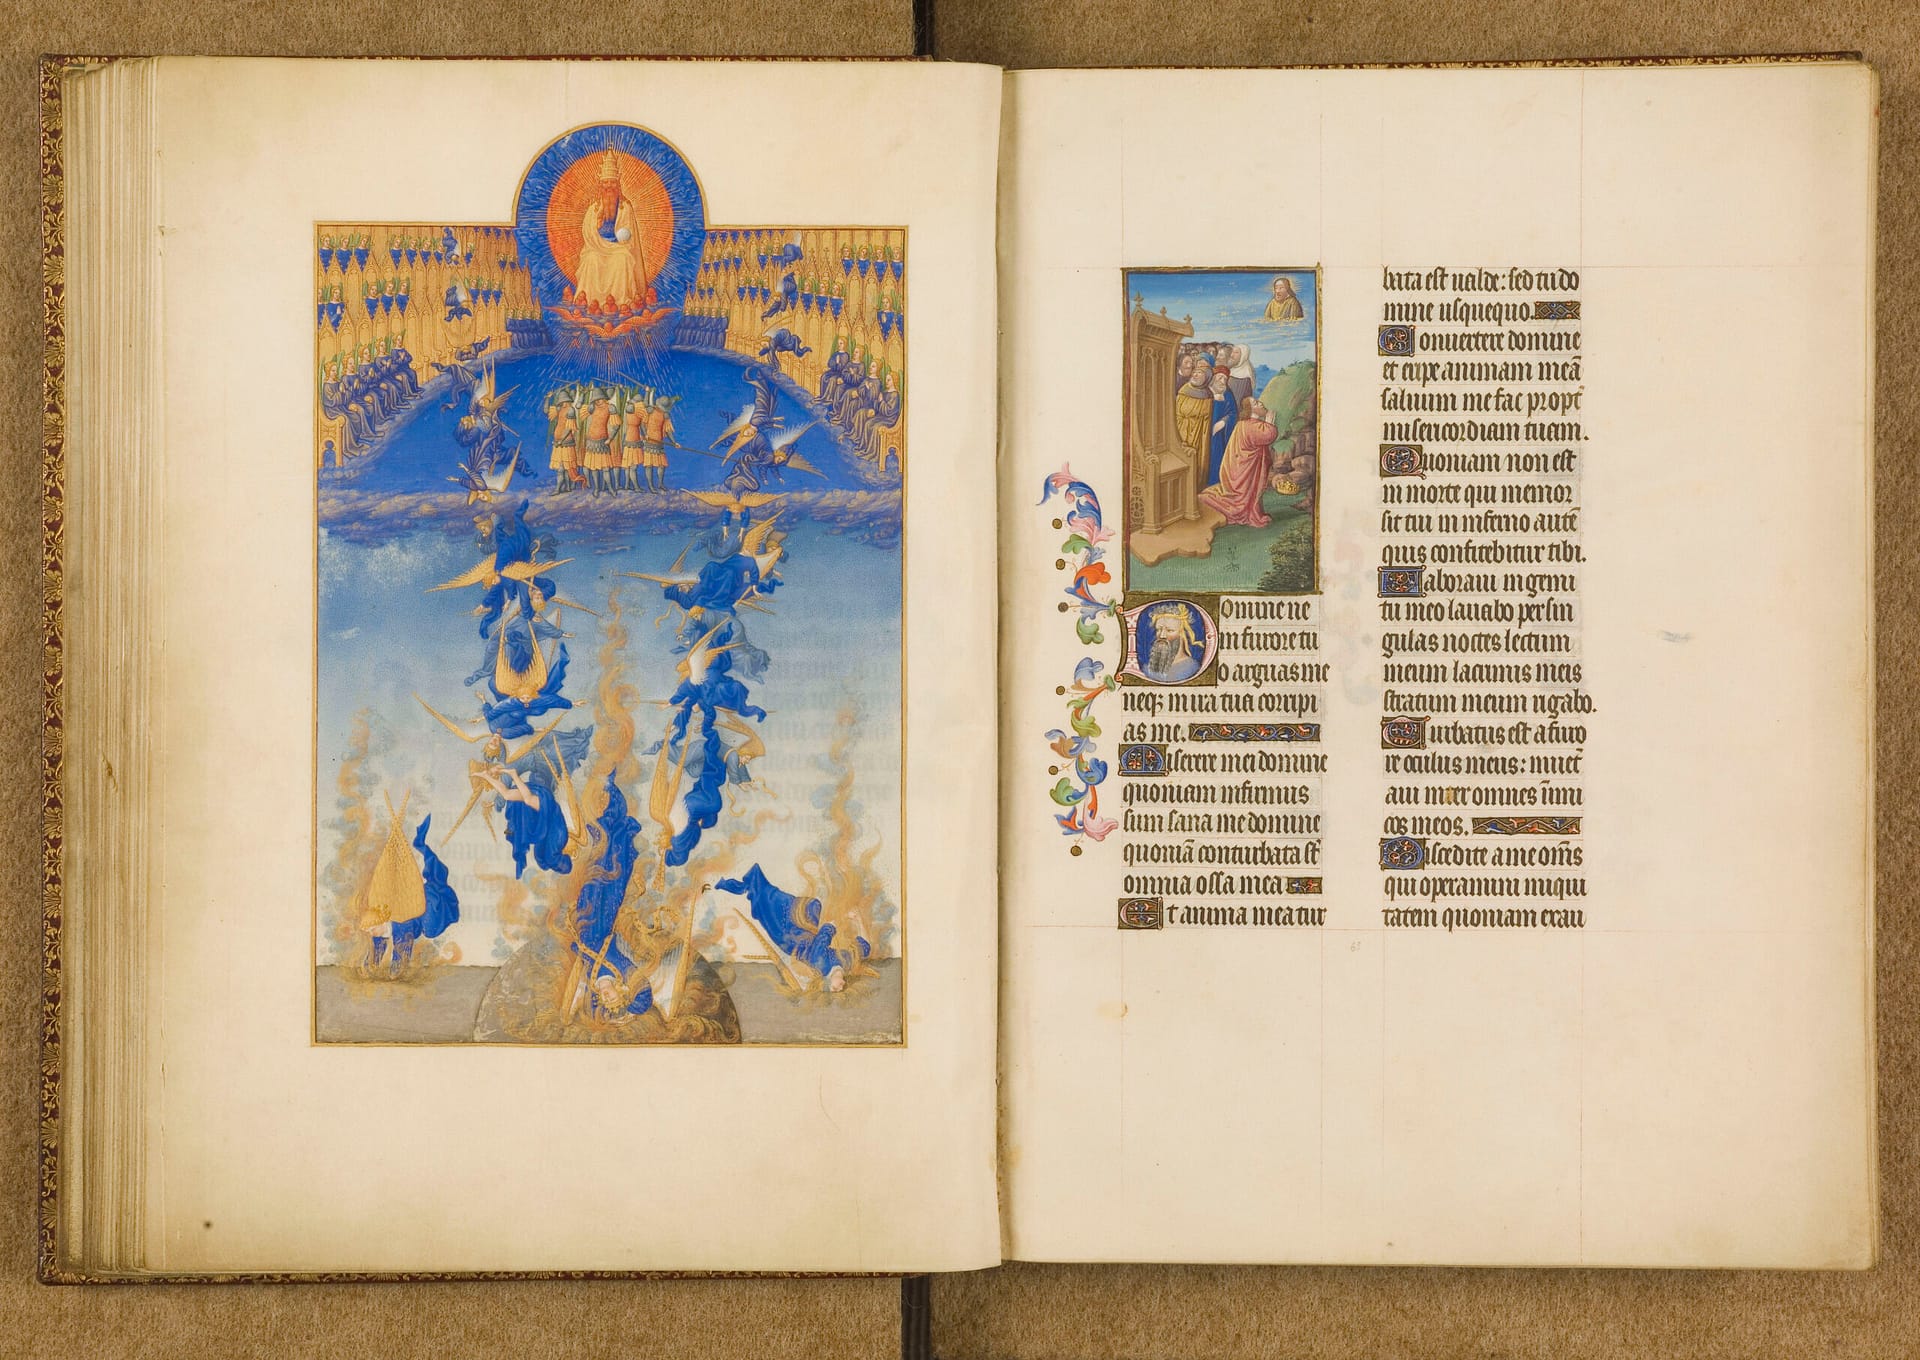 Domine ne
in furore tu
o arguas me
neq; in ira tua corripi
as me.
Miserere mei domine
quoniam infirmus
sum sana me domine
quoniā conturbata st̄
omnia ossa mea
Et anima mea tur
bata est ualde: sed tu do
mine usquequo.
Conuertere domine
et eripe animam meā
saluum me fac propt̄
misericordiam tuam.
Quoniam non est
in morte qui memor
sit tui in inferno autē
quis confitebitur tibi.
Laboraui in gemi
tu meo lauabo per sin
gulas noctes lectum
meum lacrimis meis
stratum meum rigabo.
Turbatus est a furo
re oculus meus: inuet̄
aui inter omnes inimi
cos meos.
Discedite a me om̄s
qui operamini iniqui
tatem quoniam exau